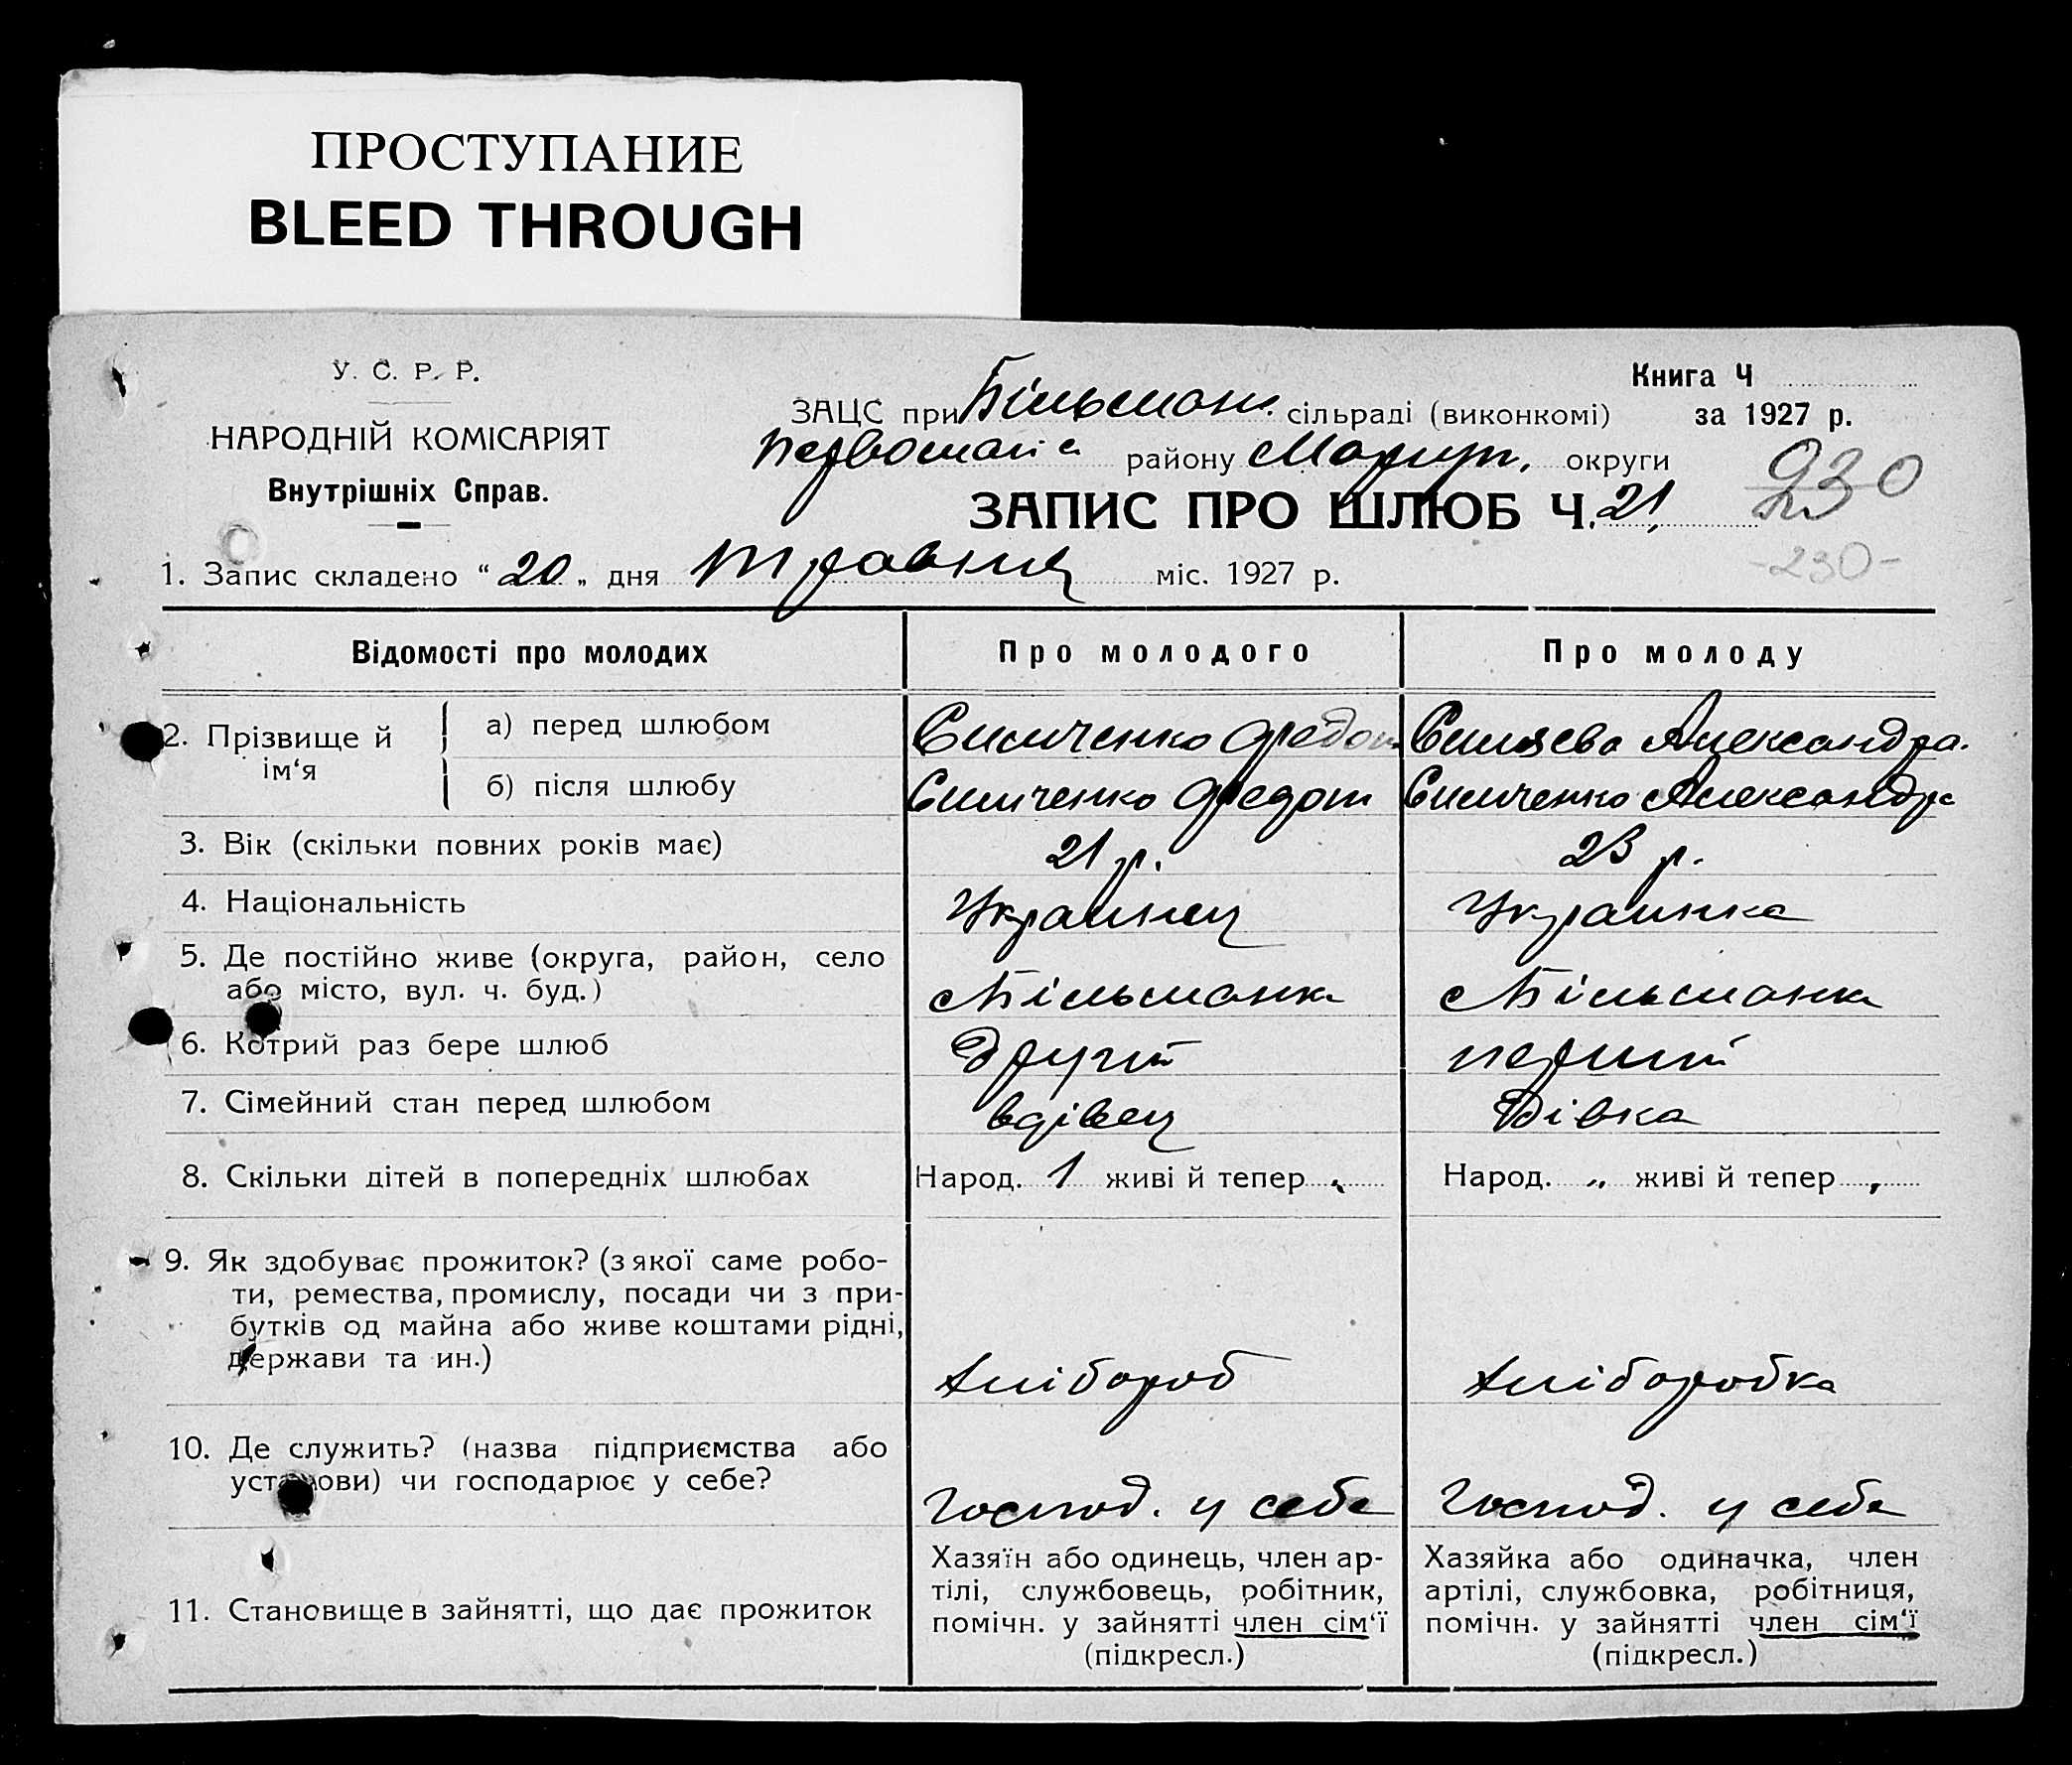 ПРОСТУПАНИЕ
BLEED THROUGH
У. С. Р. Р.
НАРОДНІЙ КОМІСАРІЯТ
Внутрішніх Справ.
Книга Ч
ЗАЦС при Більман. сільраді (виконкомі) за 1927 р.
району Маріуп. округи
230
ЗАПИС ПРО ШЛЮБ Ч. 21
-230-
1. Запис складено “ 20 „ дня травня міс. 1927 р.
Відомості про молодих Про молодого Про молоду
2. Прізвище й ім‘я
а) перед шлюбом Симченко Федот Александра.
б) після шлюбу Симченко Федот Симченко Александра
3. Вік (скільки повних років має) 21 р. 23 р.
4. Національність Украинец Украинка
5. Де постійно живе (округа, район, село
або місто, вул. ч. буд.) с Більманка с Більманка
6. Котрий раз бере шлюб другий перший
7. Сімейний стан перед шлюбом вдівец дівка
8. Скільки дітей в попередніх шлюбах Народ. 1 живі й тепер Народ. „ живі й тепер
9. Як здобуває прожиток? (з якої саме робо-
ти, ремества, промислу, посади чи з при-
бутків од майна або живе коштами рідні,
держави та ин.) хлібороб хліборобка
10. Де служить? (назва підприємства або
установи) чи господарює у себе? господ. у себе господ. у себе
11. Становище в зайнятті, що дає прожиток
Хазяїн або одинець, член ар-
тілі, службовець, робітник,
помічн. у зайнятті член сім‘ї
(підкресл.)
Хазяйка або одиначка, член
артілі, службовка, робітниця,
помічн. у зайнятті член сім‘ї
(підкресл.)